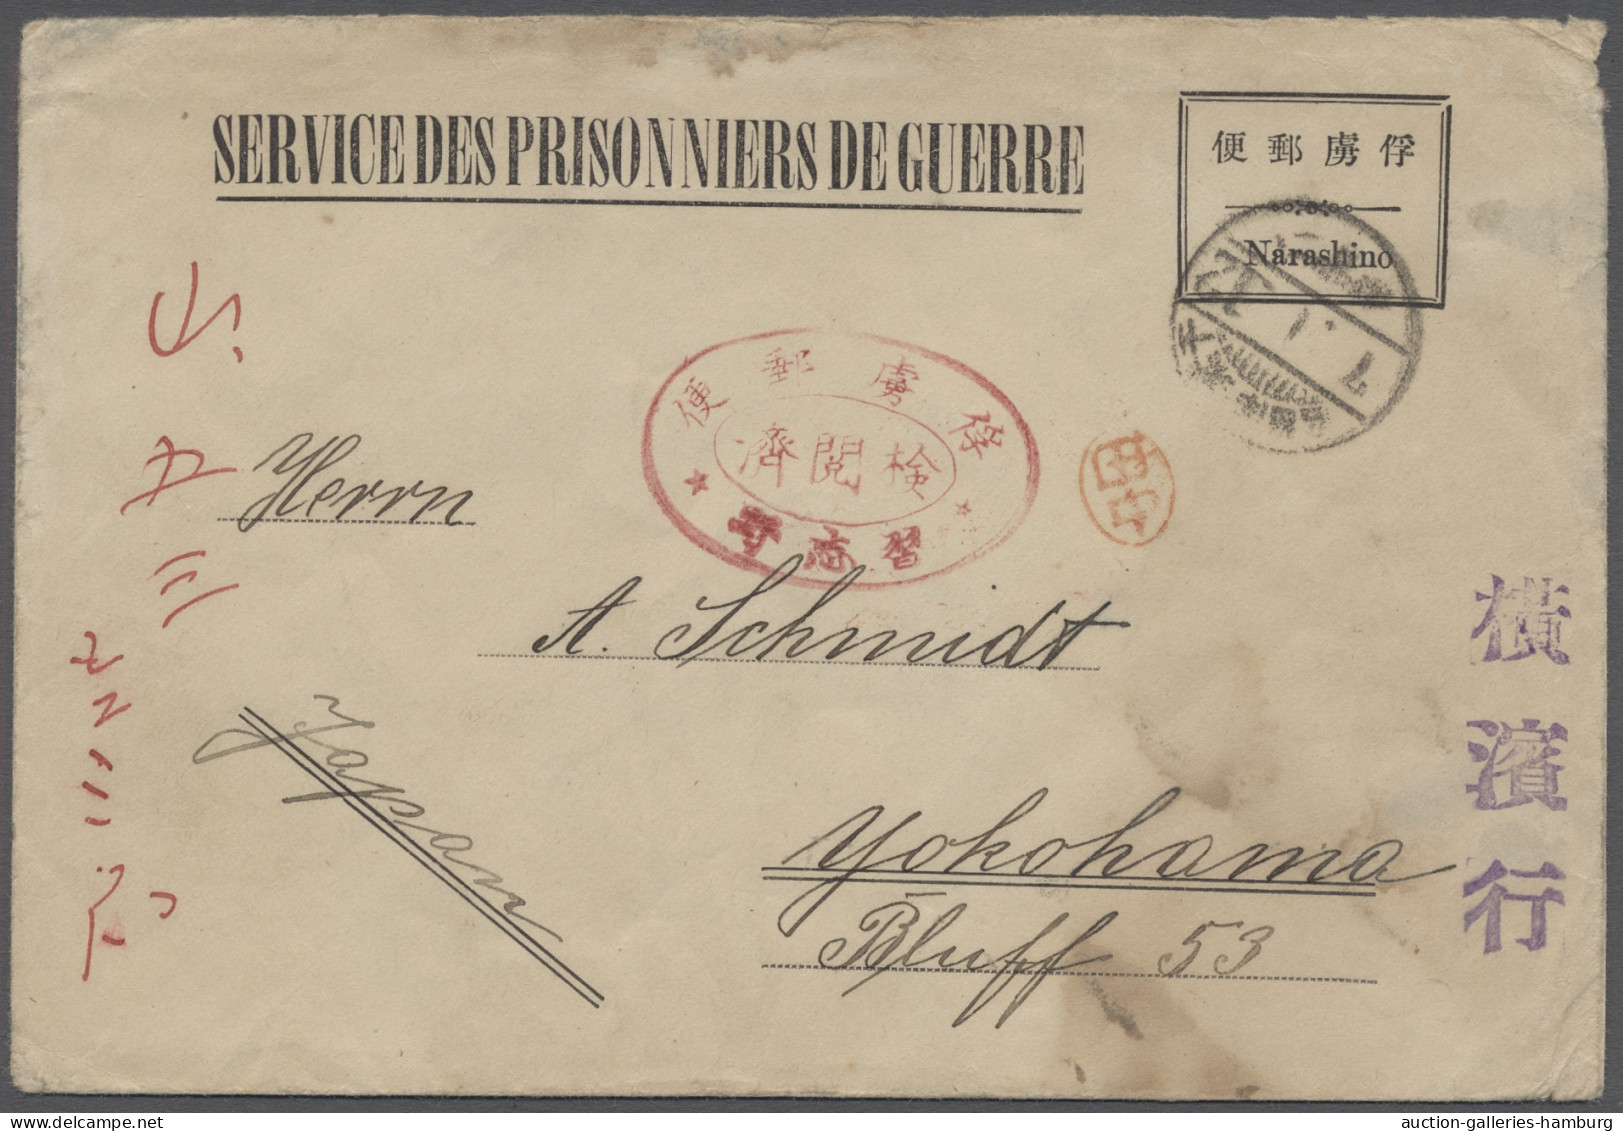 SERVICE DES PRISONNIERS DE GUERRE
便郵虜俘
Narashino
便郵虜俘
濟閲検
野志習
田中
Herrn
A. Schmidt
Japan
Yokohama
Bluff 53
横濱行
山
五三
auction-galleries-hamburg